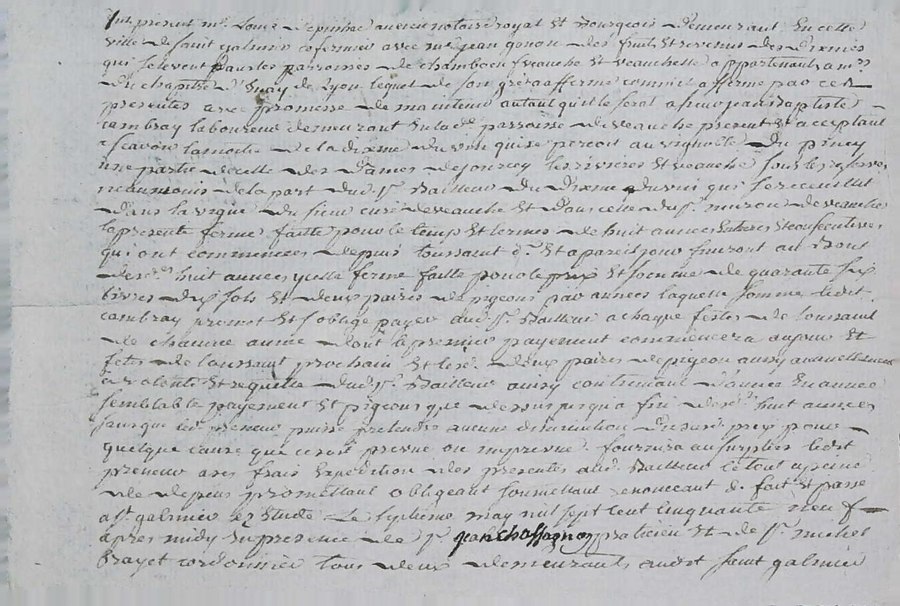 present me Louis ancien notaire royal et Bourgeois demeurant en cette
ville de saint galmier cofermier avec me jean gonon des fruits et revenus des dixmes
qui se levent dans les parroisses de chamboeu veauche et veauchette appartenants a mrs
du chapitre d'Enay de Lyon lequel de son gré a affermé comme il afferme par ces
presentes avec promesse de maintenir autant qu'il le sera a sieur jean Baptiste
cambray laboureur demeurant en lad. parroisse de veauche present et acceptant
a scavoir la moitié de la dixme du vin qui se percoit au vignoble du piney
une partie de celle des Dames de jourcey les rivieres et veauche sous les reserves
neanmoins de la part dud. sr Bailleur du dixme du vin qui se recueillit
dans la vigne du sieur curé de veauche et dans celle du sr de veauche
la presente ferme faitte pour le temps et termes de huit années entieres et consecutives
qui ont commencées depuis toussaint dr et a pareil jour finiront au bout
desd. huit années icelle ferme faitte pour le prix et somme de quarante six
livres dix sols et deux paires de pigeons par années laquelle somme ledit
cambray promet et s'oblige payer aud. sr Bailleur a chaque festes de toussaint
de chacune année dont le premier payement commencera au jour et
fetes de toussaint prochain et lesd. deux paires de pigeon aussy annuellement
a volonté et requette dud. sr Bailleur aussy continuant d'année en année
semblable payement et pigeons que dessus jusqu'a fin desd. huit années
sans que led. preneur puisse pretendre aucune diminution dud. prix pour
quelque cause que ce soit prevue ou imprevue fournira au surplus ledit
preneur a ses frais expedition des presentes aud. Bailleur le tout a peine
de depens promettant obligeant soumettant renoncant &. fait et passé
a st galmier ez etude le septieme may mil sept cent cinquante neuf
apres midy en presence de sr jean chassagnon praticien et de sr michel
Bayet cordonnier tous deux demeurants audit saint galmier